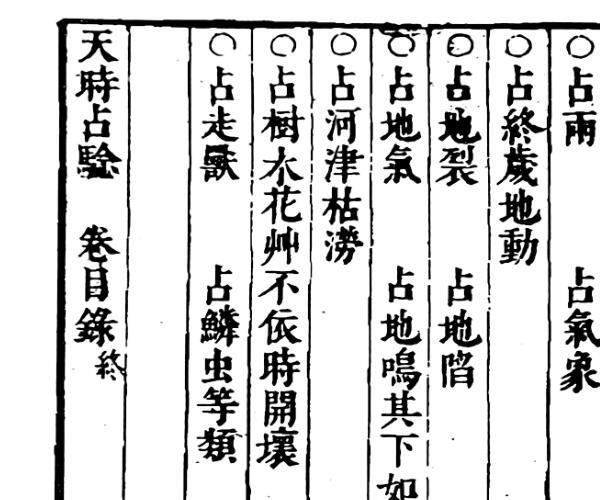 ○占雨 占氣象
○占終歲地動
○占地裂 占地陷
○占地氣 占地鳴其下如
○占河津枯澇
○占樹木花艸不依時開壞
○占走獸 占鱗虫等類
天時占驗 卷目錄終